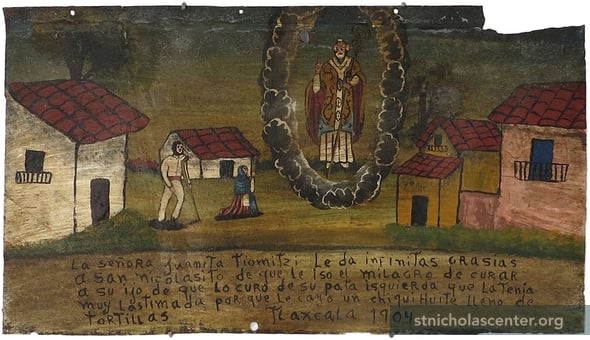 La señora Juanita Tiomitzi Le da infinitas grasias
a san nicolasito de que le iso el milagro de curar
a su ijo de que lo curo de su pata isquierda que La tenia
muy Lastimada por que le cayo un chiquihuite lleno de
tortillas Tlaxcala 1904
stnicholascenter.org